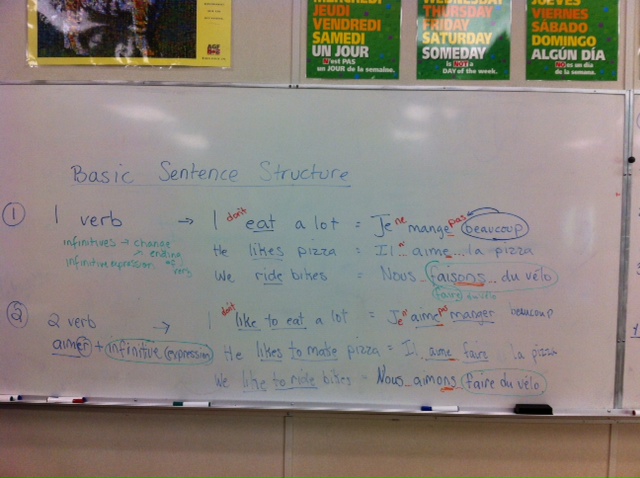 MERCREDI WEDNESDAY JUEVES
JEUDI THURSDAY VIERNES
VENDREDI FRIDAY SÁBADO
SAMEDI SATURDAY DOMINGO
UN JOUR SOMEDAY ALGÚN DÍA
N'est PAS is NOT a NO es un día
un JOUR de la semaine. DAY of the week. de la semana.
Basic Sentence Structure
1 1 verb → I don't eat a lot = Je ne mange pas beaucoup
infinitives → change
→ ending
infinitive expression
He likes pizza = Il n' aime... la pizza
We ride bikes = Nous...faisons...du vélo
faire du vélo
2 2 verb → I don't like to eat a lot = Je n' aime pas manger beaucoup
aimer + infinitive (expression)
He likes to make pizza = Il aime faire la pizza
We like to ride bikes = Nous...aimons faire du vélo